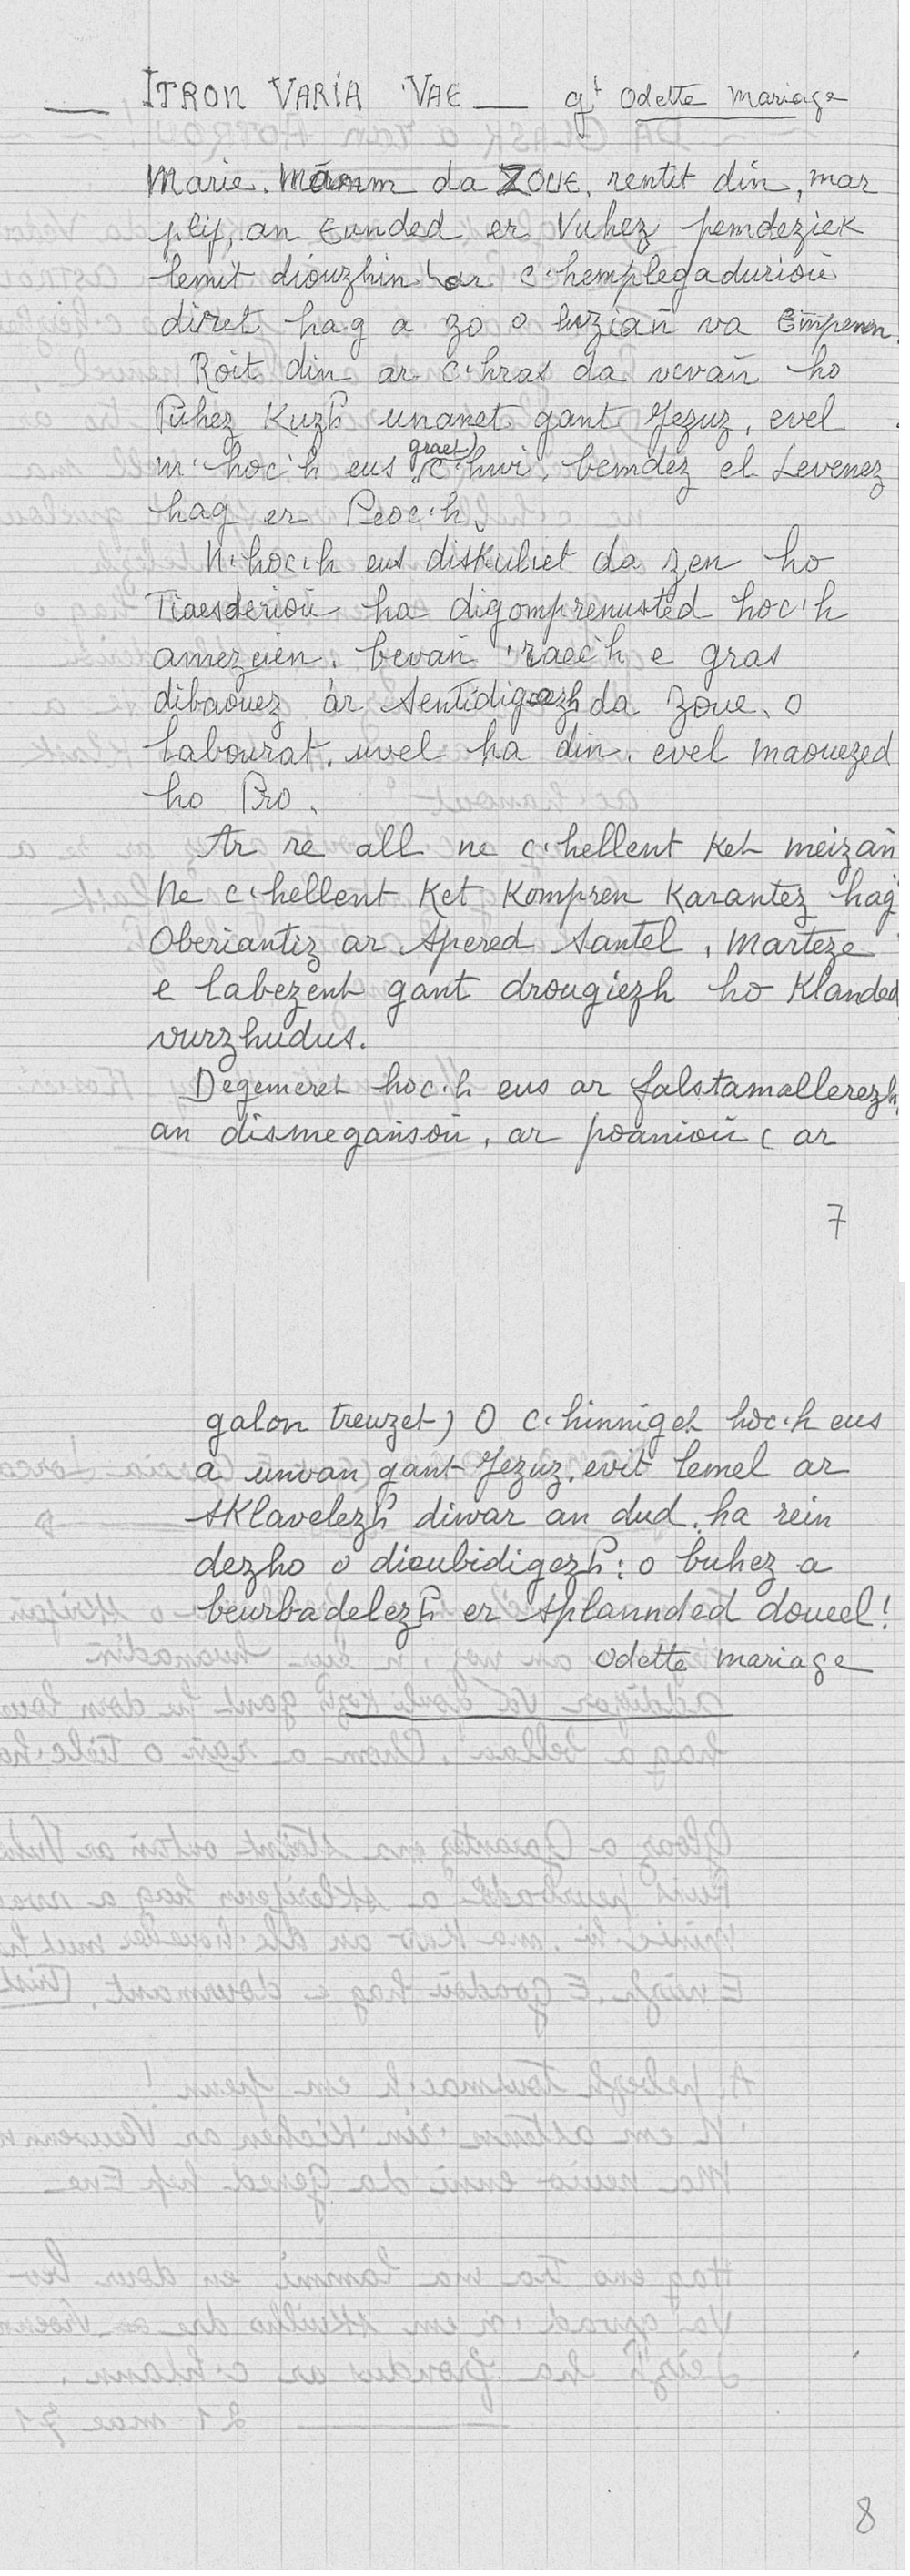 ITRON VARIA 'VAE — gt Odette mariage
Marie. Mamm da ZOUE, rentit din, mar
plij, an Eunded er Vuhez pemdeziek
lemit diouzhin ar c'hemplegadurioù
diret hag a zo o luzian va Empenn.
Roit din ar c'hras da vevañ ho
Puhez Kuzh unanet gant Jezuz, evel
m' hoc'h eus graet c'hwi, bemdez el Levenez
hag er Peoc'h.
N'hoc'h eus diskuliet da zen ho
Tiaesderioù ha digomprenusted hoc'h
amezeien. bevañ 'raec'h e gras
dibaouez ar Sentidigezh da Zoue, o
labourat, uvel ha din, evel maouezed
ho Bro.
Ar re all ne c'hellent ket meizañ
Ne c'hellent Ket Kompren Karantez hag
Oberiantiz ar Spered Santel, Marteze
e labezent gant drougiezh ho Klanded
vurzhudus.
Degemeret hoc'h eus ar falstamallerezh,
an dismegañsoù, ar poanioù ( ar
7
galon treuzet) O c'hinniget hoc'h eus
a unvan gant Jezuz, evit lemel ar
sklavelezh diwar an dud, ha rein
dezho o dieubidigezh: o buhez a
beurbadelezh er splannded doueel!
Odette mariage
8